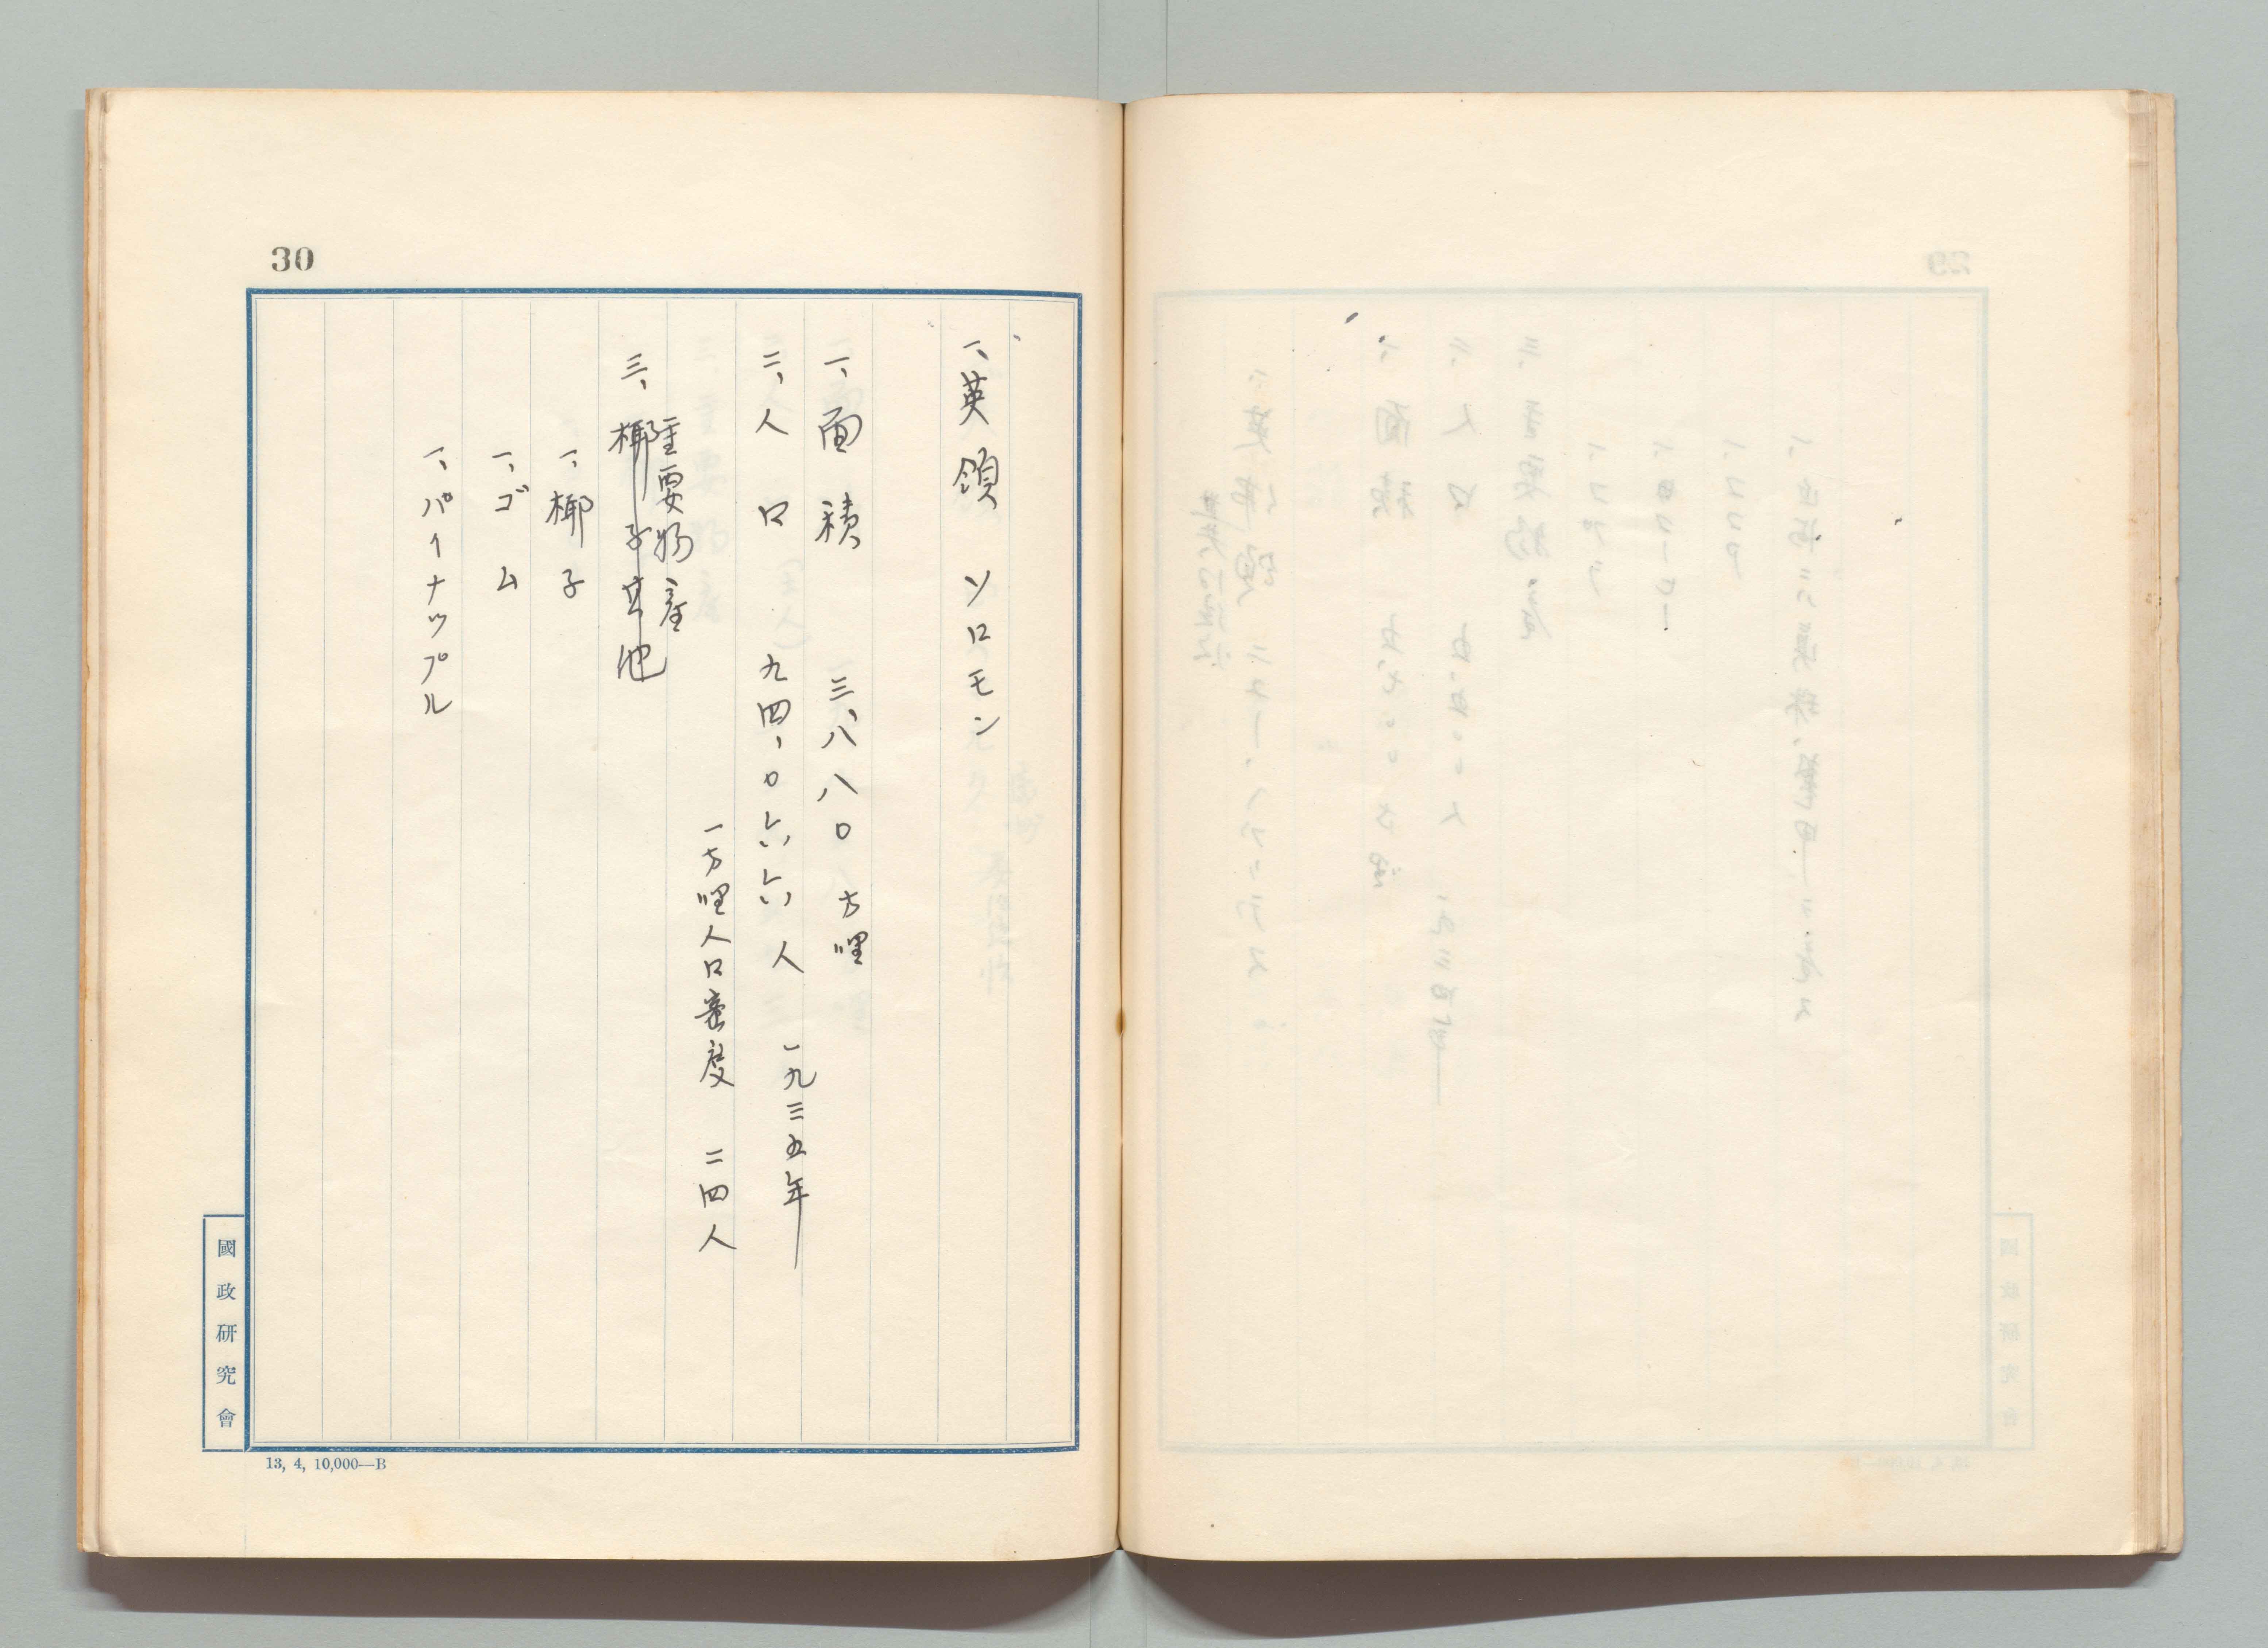 30
一、英領 ソロモン
一、面積 三、八八〇 方哩
二、人口 九四、〇六六人 一九三五年
一方哩人口密度 二四人
重要物産
三、椰子其他
一、椰子
一、ゴム
一、パイナップル
國政研究會
13, 4, 10,000—B